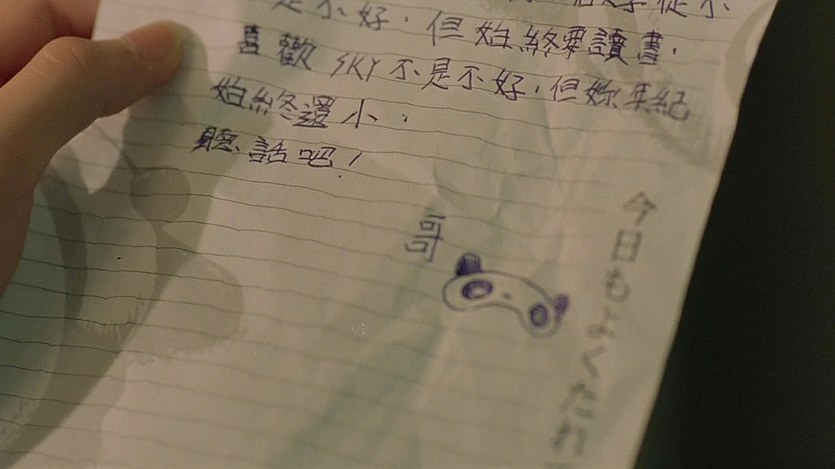 是不好，但始終要讀書，
喜歡 SKY 不是不好，但妳年紀
始終還小，
聽話吧！
哥
今日もよくたれ